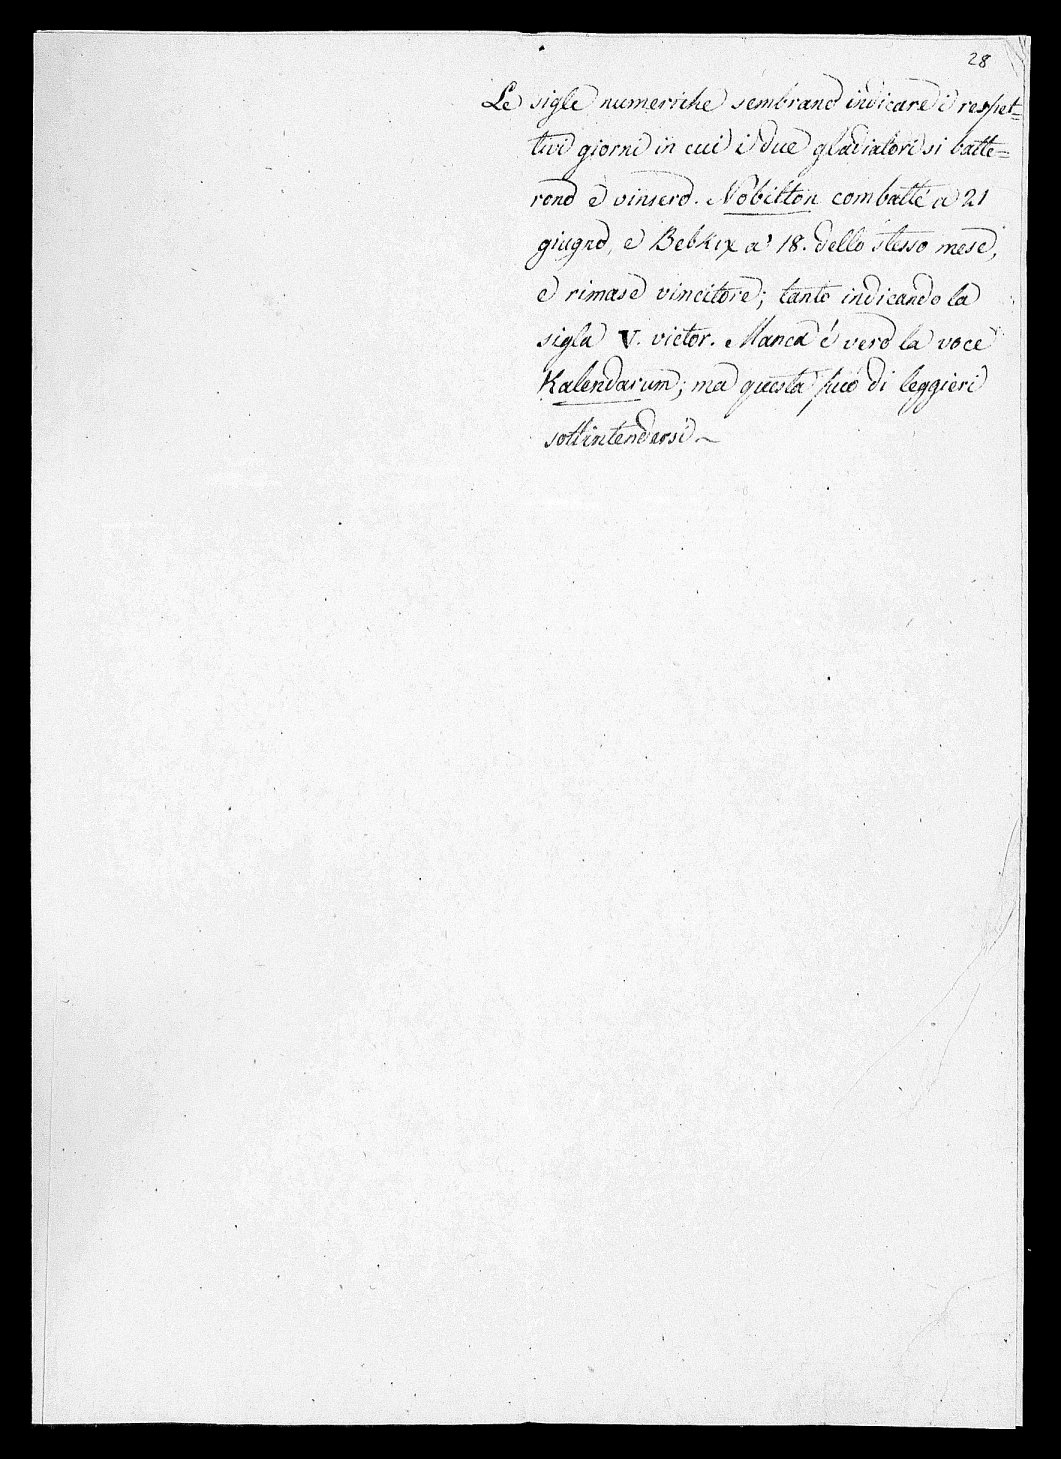 28
Le sigle numeriche sembrano indicare i respet=
tivi giorni in cui i due gladiatori si batte=
rono e vinsero. Nobilton combatté a 21
giugno, e Bebkix a' 18. dello stesso mese,
e rimase vincitore; tanto indicando la
sigla V. victor. Manca é vero la voce
Kalendarum; ma questa puó di leggieri
sottintendersi~